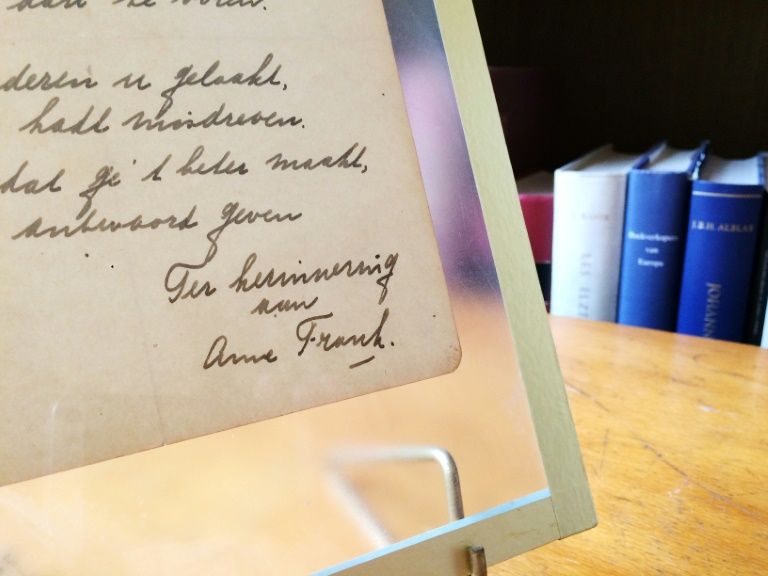 dan te voren.
deren u gelaakt,
hadt misdreven.
dat ge 't beter maakt,
antwoord geven
Ter herinnering
aan
Anne Frank.
LES ELZE
Boekverkopers
van
Europa
J.B.H. ALBLAS
JOHANN